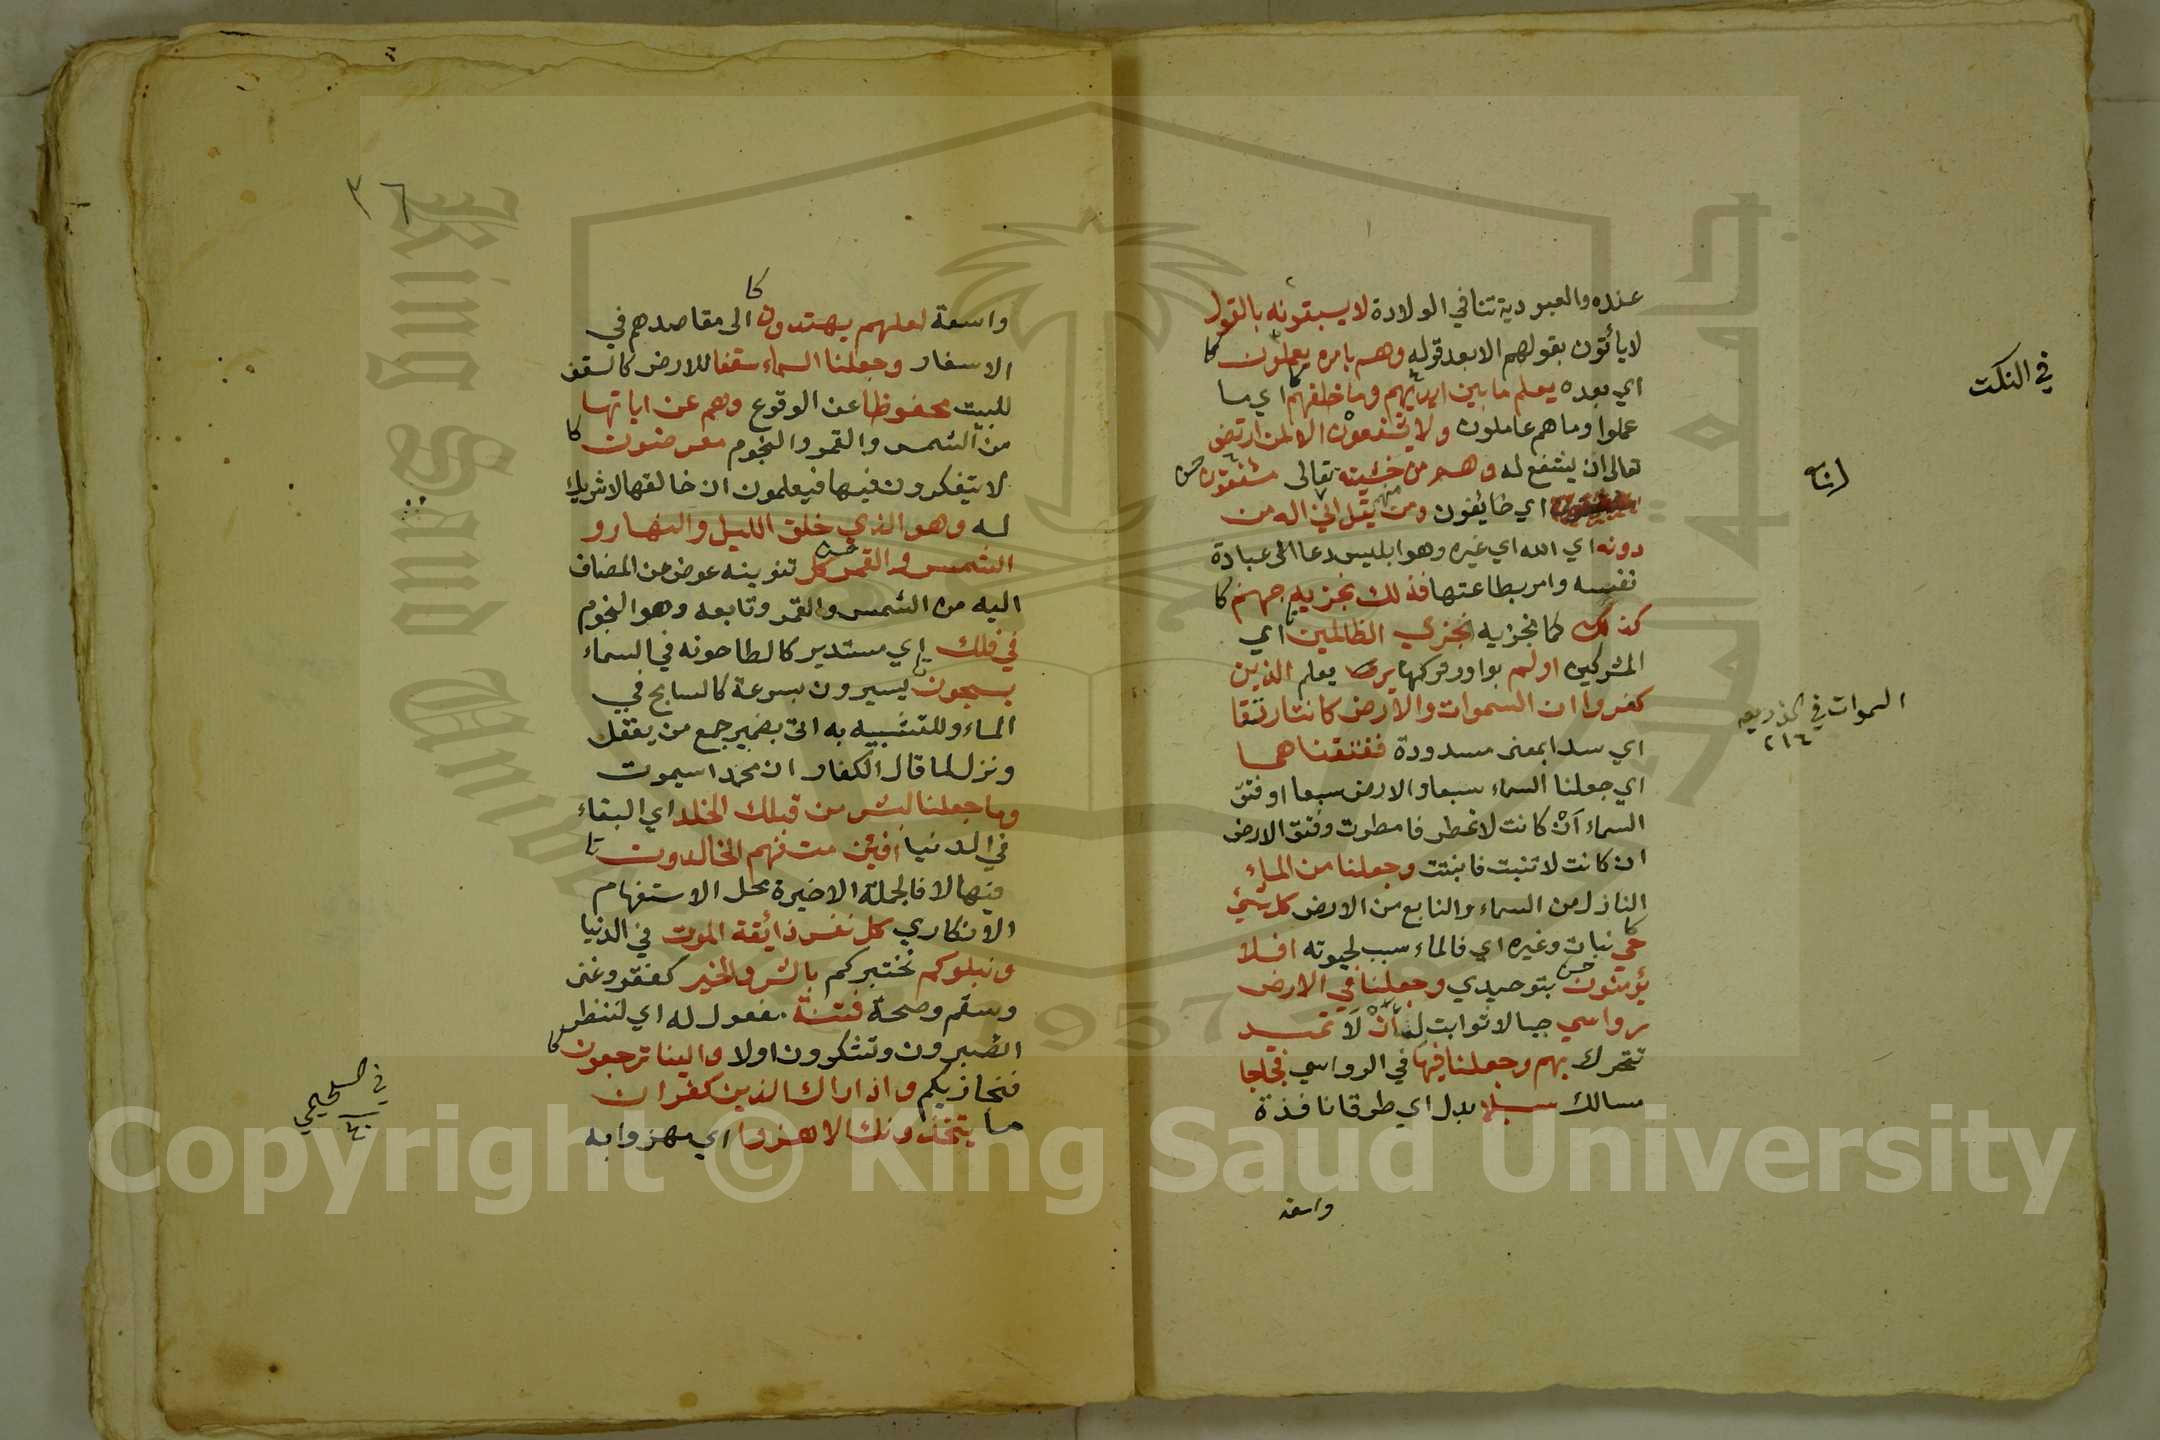 عنده والعبودية تنافي الولادة لا يسبقونه بالقول
لا يأتون بقولهم الا بعد قوله وهم بامره يعملون كا
اي بعده يعلم ما بين ايديهم وما خلفهم اي ما
عملوا وما هم عاملون ولا يشفعون الا لمن ارتضى
تعالى ان يشفع له وهم من خشيته تعالى مشفقون
اي خايفون ومن يقل منهم اني اله من
دونه اي الله اي غيره وهو ابليس دعا الى عبادة
نفسه وامر بطاعتها فذلك نجزيه جهنم كا
كذلك كما نجزيه نجزي الظالمين اي
المشركين اولم بواو وتركها ير يعلم الذين
كفروا ان السموات والارض كانتا رتقا
اي سدا بمعنى مسدودة ففتقناهما
اي جعلنا السماء سبعا والارض سبعا او فتق
السماء ان كانت لا تمطر فامطرت وفتق الارض
ان كانت لا تنبت فانبتت وجعلنا من الماء
النازل من السماء والنابع من الارض كل شيء
حي نبات وغيره اي فالماء سبب لحيوته افلا
يؤمنون بتوحيدي وجعلنا في الارض
رواسي جبالا ثوابت لـ أن لا تميد
تتحرك بهم وجعلنا فيها في الرواسي فجاجا
مسالك سبلا بدل اي طرقا نافذة
واسعة
في النكت
السموات في
٢١٤
٣٦
كا
واسعة لعلهم يهتدون الى مقاصدهم في
الاسفار وجعلنا السماء سقفا للارض كالسقف
للبيت محفوظا عن الوقوع وهم عن اياتها
من الشمس والقمر والنجوم معرضون كا
لا يتفكرون فيها فيعلمون ان خالقها لا شريك
له وهو الذي خلق الليل والنهار و
الشمس والقمر كل تنوينه عوض من المضاف
اليه من الشمس والقمر وتابعه وهو النجوم
في فلك اي مستدير كالطاحونه في السماء
يسبحون يسيرون بسرعة كالسابح في
الماء وللتشبيه به اتى بضمير جمع من يعقل
ونزل لما قال الكفار ان محمدا سيموت
وما جعلنا لبشر من قبلك الخلد اي البقاء
في الدنيا افإئن مت فهم الخالدون
فيها لا فالجملة الاخيرة محل الاستفهام
الانكاري كل نفس ذائقة الموت في الدنيا
ونبلوكم نختبركم بالشر والخير كفقر وغنى
وسقم وصحة فتنة مفعول له اي لننظر
اتصبرون وتشكرون اولا والينا ترجعون كا
فنجازيكم واذا راك الذين كفروا ان
ما يتخذونك الا هزوا اي مهزوا به
King Saud University
جامعة الملك سعود
1957
Copyright © King Saud University